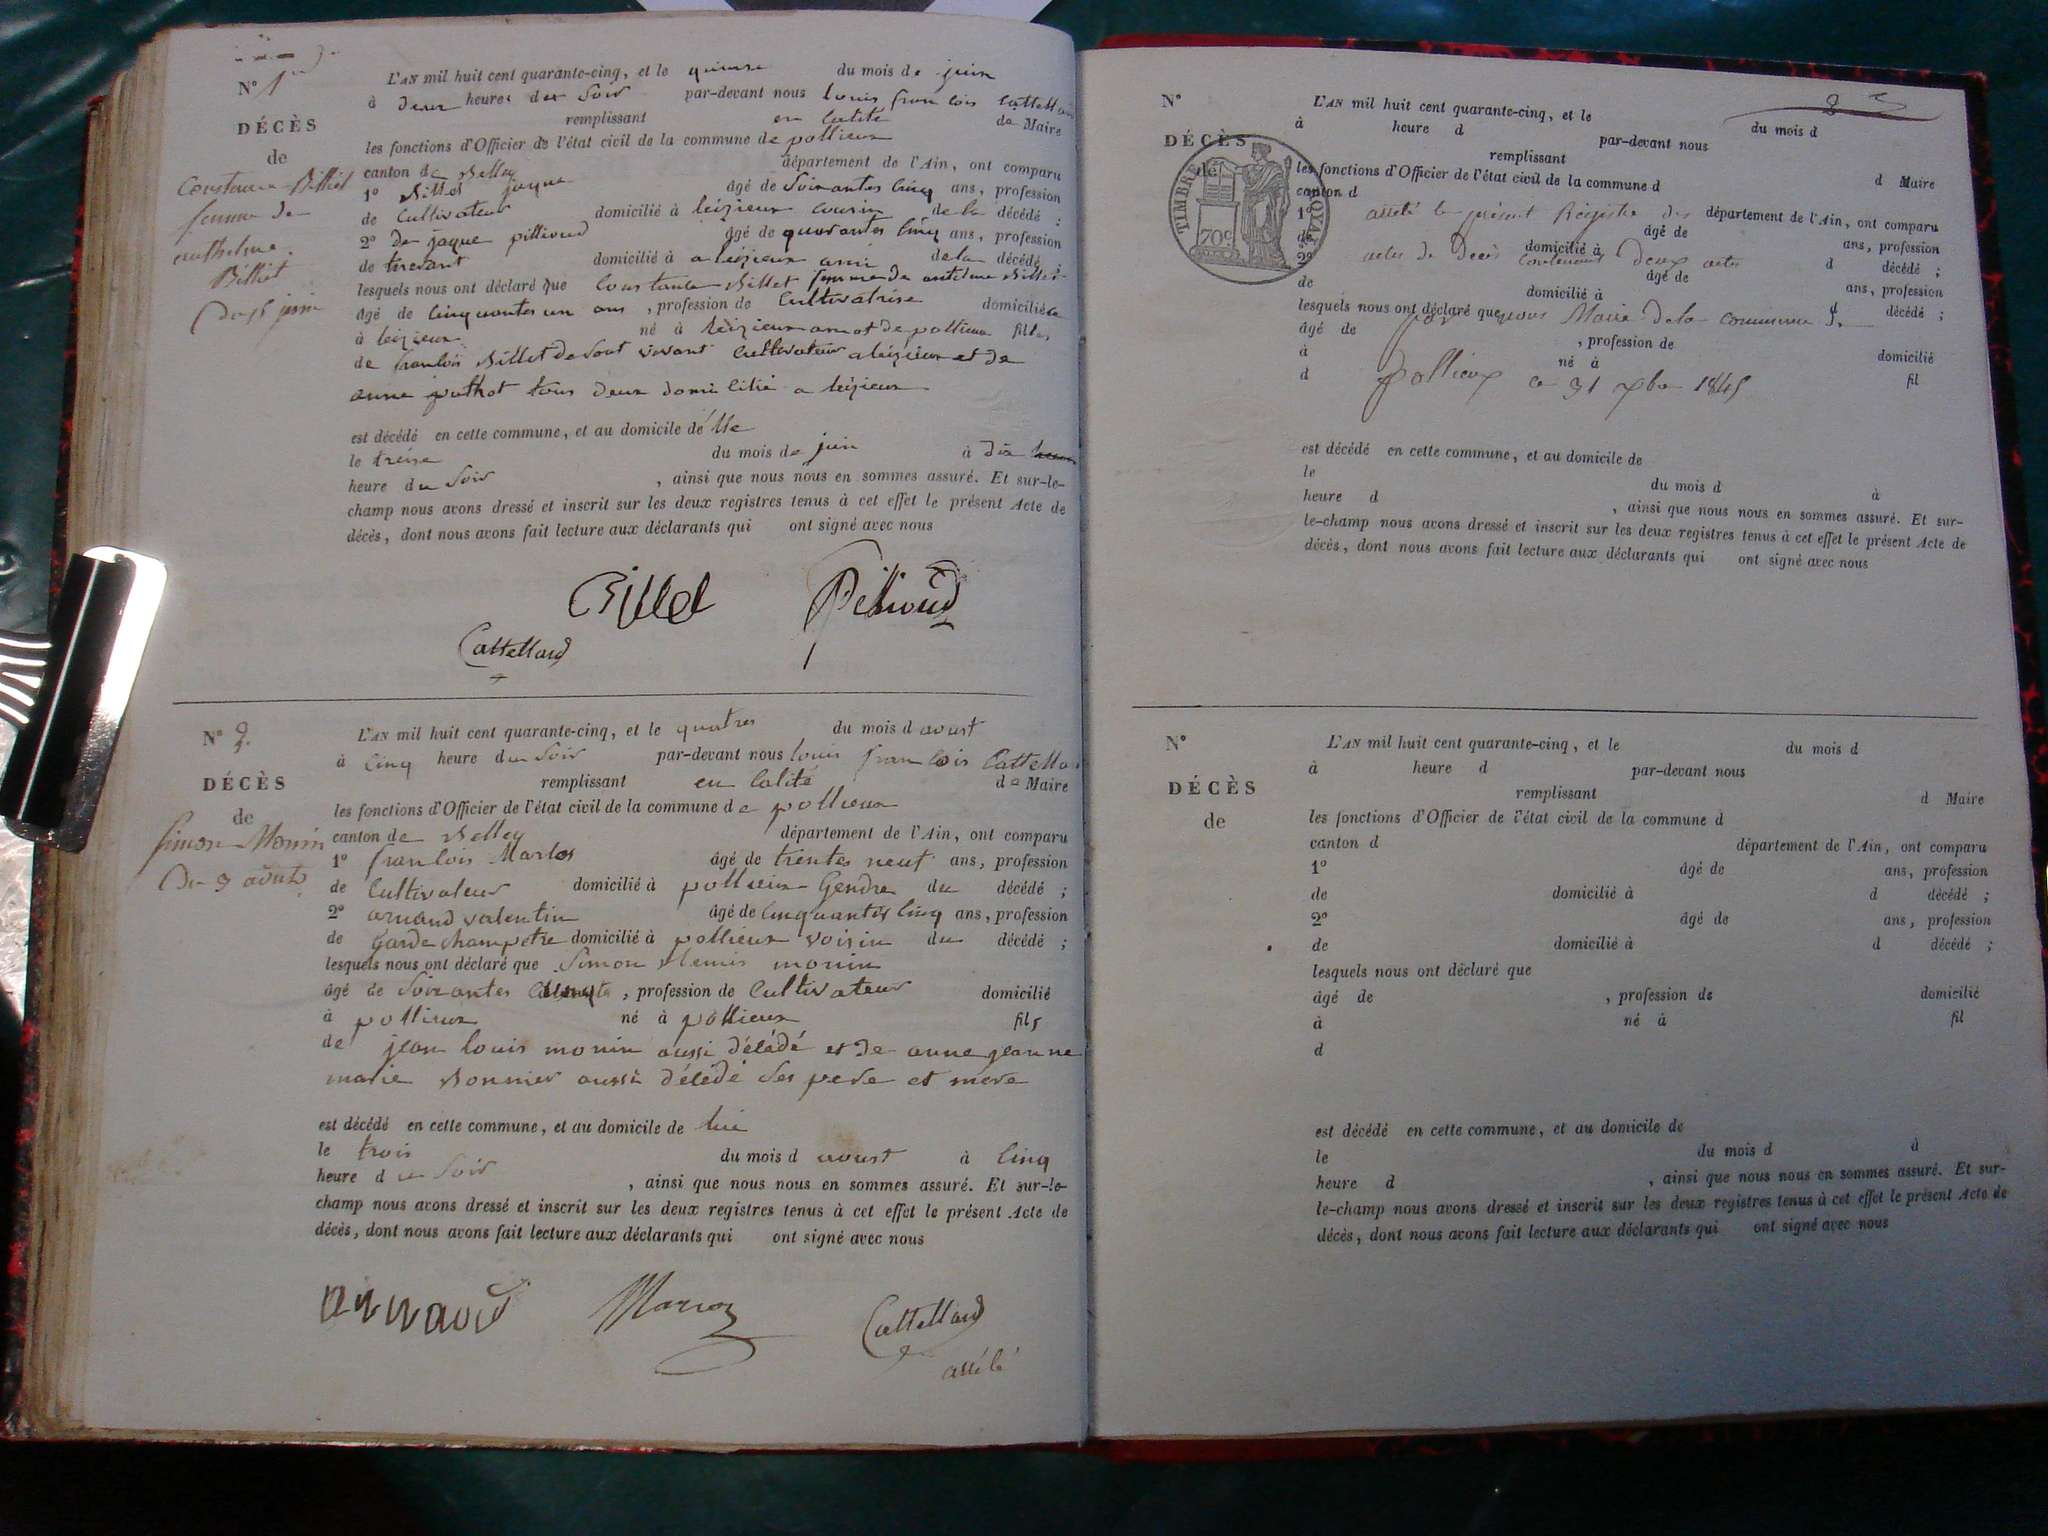 N° 1er
DÉCÈS
de
Constance Billiet
femme de
anthelme
Billiet
Du 15 juin
L'AN mil huit cent quarante-cinq, et le quinse du mois de juin
à deux heures du soir par-devant nous louis francois Cattelland
remplissant en calité de Maire
les fonctions d'Officier de l'état civil de la commune de pollieux
canton de Belley département de l'Ain, ont comparu
1° Billet jaque âgé de soixantes cinq ans, profession
de cultivateur domicilié à leizieux cousin de la décédé ;
2° de jaque pillioud âgé de quarantes cinq ans, profession
de domicilié à a leizieux ami de la décédé ;
lesquels nous ont déclaré que Constance Billet femme de antelme Billet
âgé de cinquantes un ans , profession de cultivatrise domiciliée
à leizieux né à leizieux de pollieux fille,
de francois Billet de vivant cultivateur a leizieux et de
anne tous deux domicilié a leizieux
est décédé en cette commune, et au domicile de
le treise du mois de juin à dix
heure du soir , ainsi que nous nous en sommes assuré. Et sur-le-
champ nous avons dressé et inscrit sur les deux registres tenus à cet effet le présent Acte de
décès, dont nous avons fait lecture aux déclarants qui ont signé avec nous
Billet Pillioud
Cattelland
N° 2
DÉCÈS
de
Simon Monin
Du 3 avout
L'AN mil huit cent quarante-cinq, et le quatres du mois d avoust
à cinq heure du soir par-devant nous louis francois Cattella
remplissant en calité de Maire
les fonctions d'Officier de l'état civil de la commune de pollieux
canton de Belley département de l'Ain, ont comparu
1° francois Marlos âgé de trentes neuf ans, profession
de cultivateur domicilié à pollieux Gendre du décédé ;
2° arnaud valentin âgé de cinquantes cinq ans, profession
de garde champetre domicilié à pollieux voisin du décédé ;
lesquels nous ont déclaré que Simon monin
âgé de soixantes , profession de cultivateur domicilié
à pollieux né à pollieux fils
de jean louis monin aussi décédé et de anne jeanne
marie Bonnier aussi décédé ses pere et mere
est décédé en cette commune, et au domicile de lui
le trois du mois d avoust à cinq
heure du soir , ainsi que nous nous en sommes assuré. Et sur-le-
champ nous avons dressé et inscrit sur les deux registres tenus à cet effet le présent Acte de
décès, dont nous avons fait lecture aux déclarants qui ont signé avec nous
arnaud Marioz Cattelland
N°
DÉCÈS
de
TIMBRE ROYAL
70c
L'AN mil huit cent quarante-cinq, et le du mois d
à heure d par-devant nous
remplissant d Maire
les fonctions d'Officier de l'état civil de la commune d
canton d département de l'Ain, ont comparu
arreté le présent Registre des
1° âgé de ans, profession
de domicilié à d décédé ;
actes de Décès contenant deux actes
2° âgé de ans, profession
de domicilié à d décédé ;
lesquels nous ont déclaré que
par nous Maire de la commune de
âgé de , profession de domicilié
à né à fil
d
Pollieux ce 31 xbre 1845
est décédé en cette commune, et au domicile de
le du mois d à
heure d , ainsi que nous nous en sommes assuré. Et sur-
le-champ nous avons dressé et inscrit sur les deux registres tenus à cet effet le présent Acte de
décès, dont nous avons fait lecture aux déclarants qui ont signé avec nous
N°
DÉCÈS
de
L'AN mil huit cent quarante-cinq, et le du mois d
à heure d par-devant nous
remplissant d Maire
les fonctions d'Officier de l'état civil de la commune d
canton d département de l'Ain, ont comparu
1° âgé de ans, profession
de domicilié à d décédé ;
2° âgé de ans, profession
de domicilié à d décédé ;
lesquels nous ont déclaré que
âgé de , profession de domicilié
à né à fil
d
est décédé en cette commune, et au domicile de
le du mois d à
heure d , ainsi que nous nous en sommes assuré. Et sur-
le-champ nous avons dressé et inscrit sur les deux registres tenus à cet effet le présent Acte de
décès, dont nous avons fait lecture aux déclarants qui ont signé avec nous